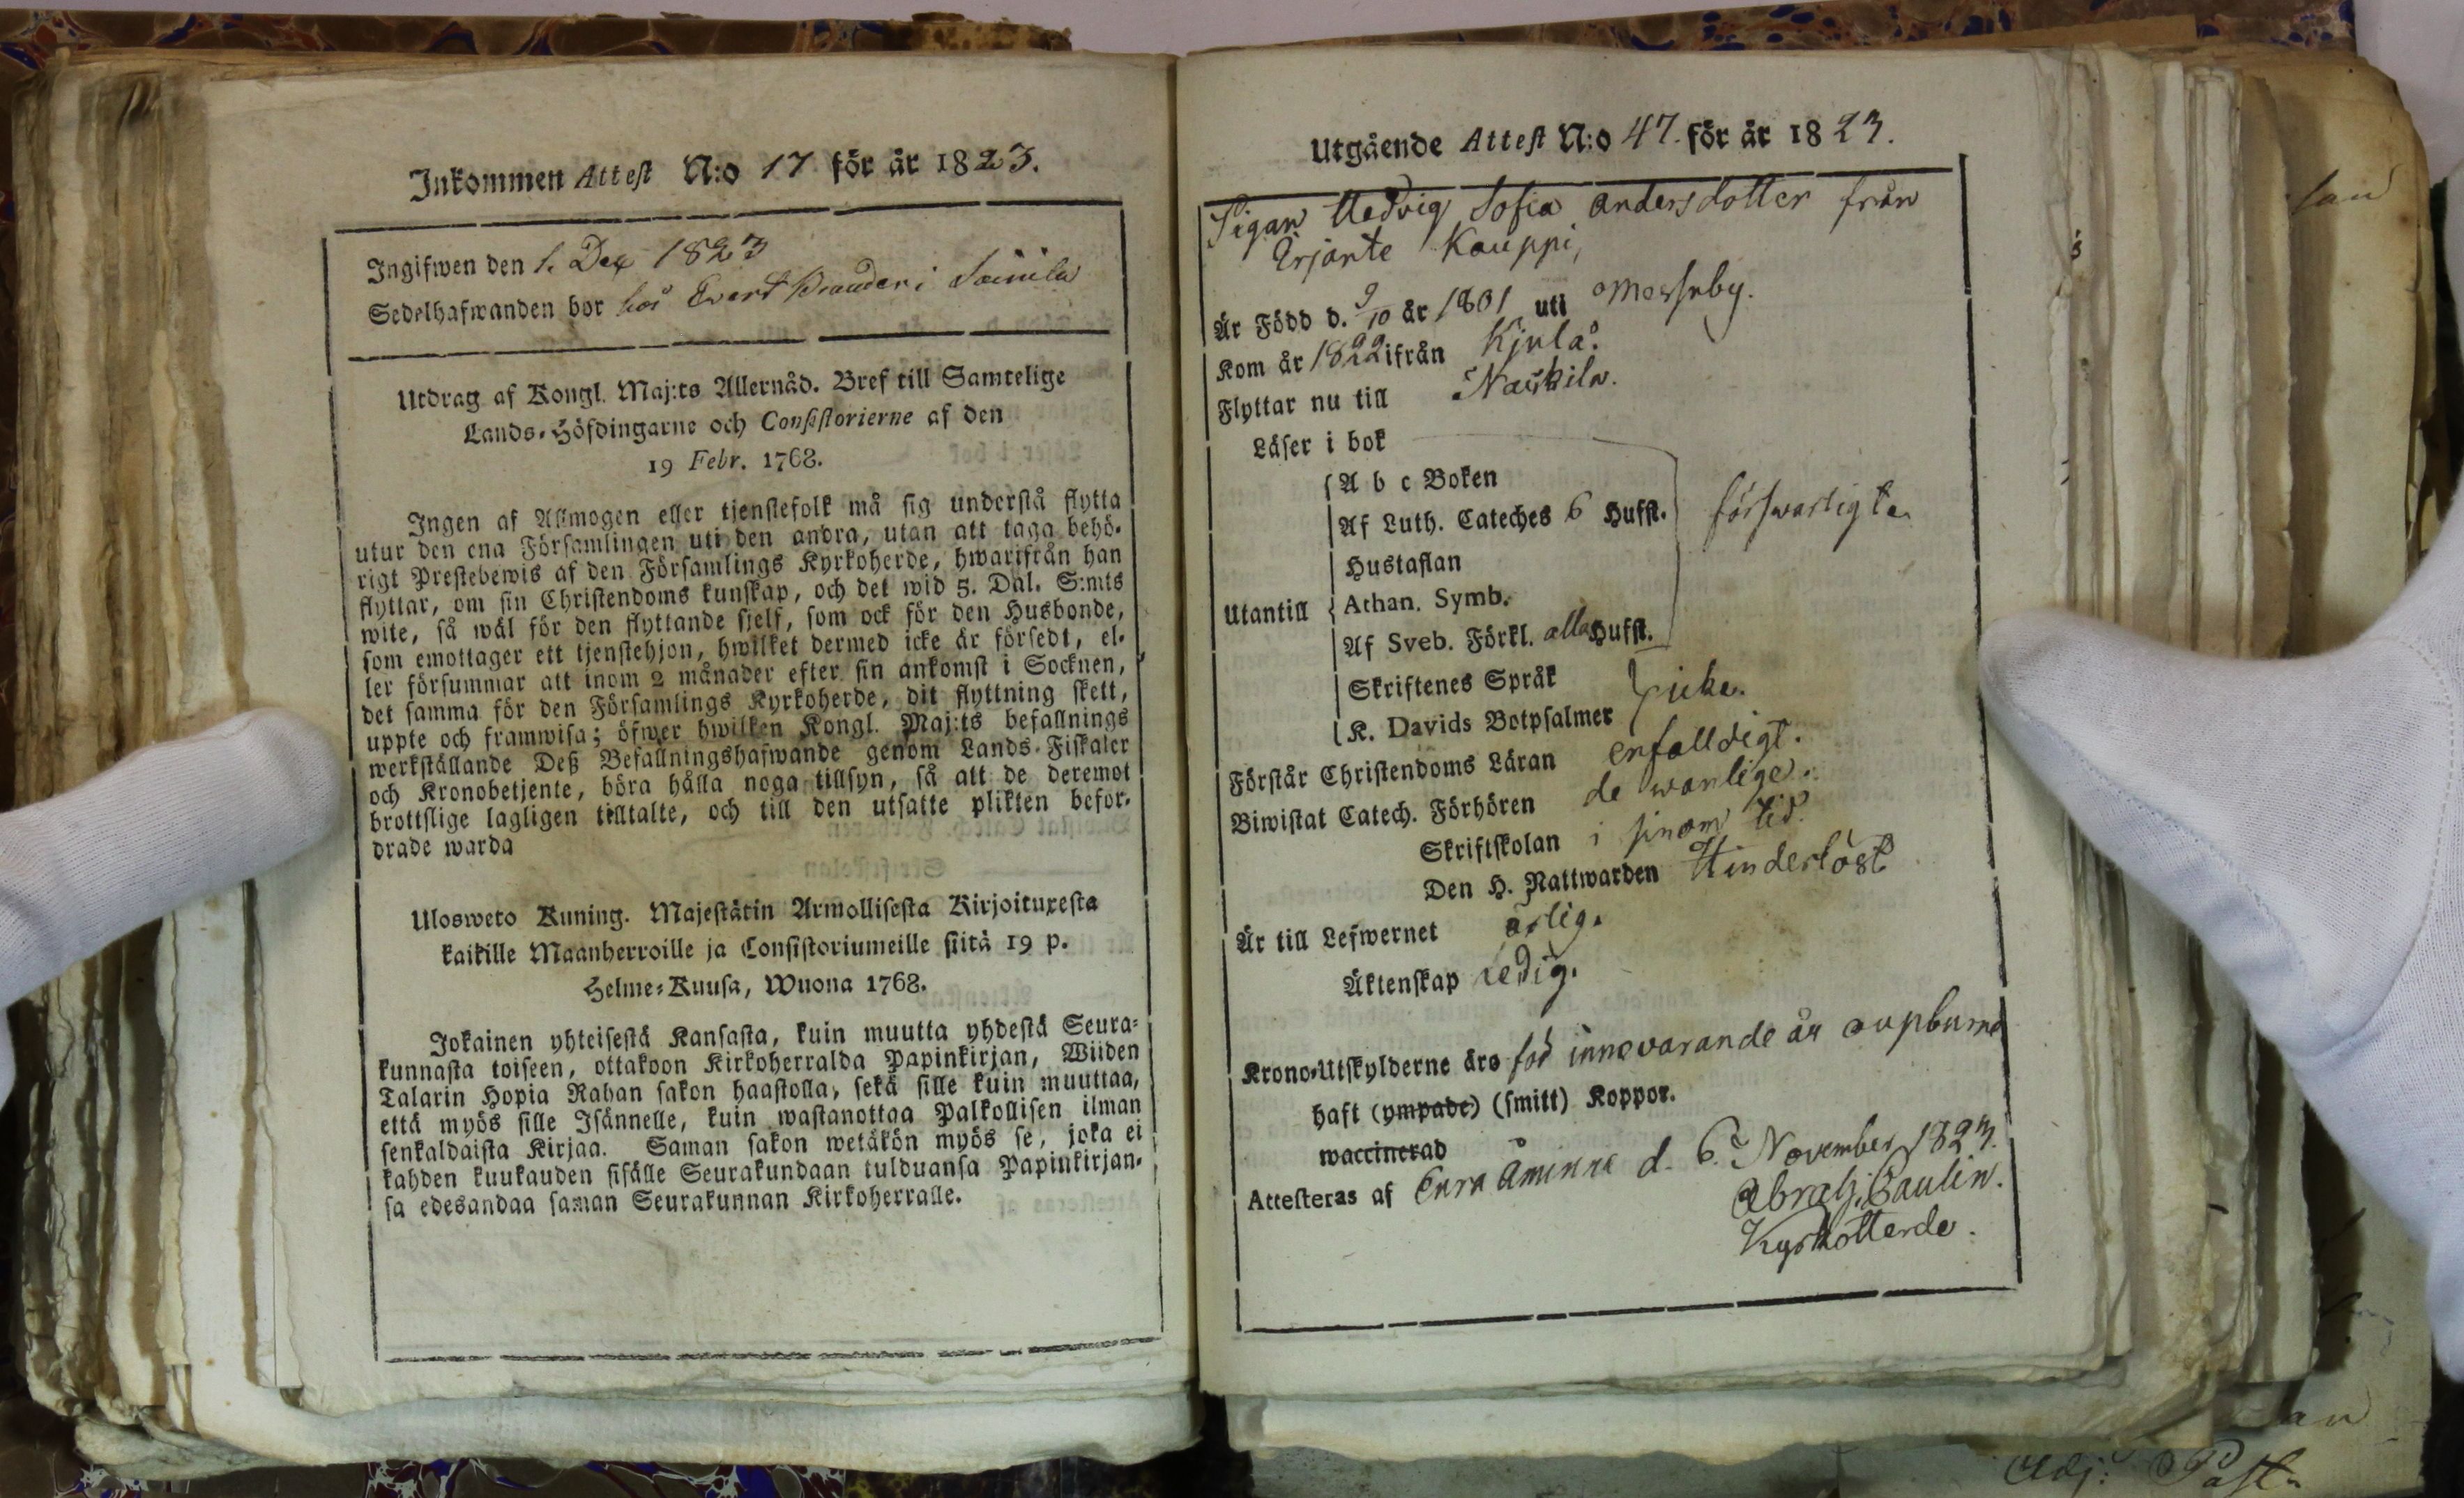 Inkommen Attest N:o 17 för år 1823.
Ingifwen den 1. Dec 1823
Sedelhafwanden bor hos Evert i
Utdrag af Kongl. Maj:ts Allernåd. Bref till Samtelige
Lands-Höfdingarne och Consistorierne af den
19 Febr. 1768.
Ingen af Allmogen eller tjenstefolk må sig understå flytta
utur den ena Församlingen uti den andra, utan att taga behö-
rigt Prestebewis af den Församlings Kyrkoherde, hwarifrån han
flyttar, om sin Christendoms kunskap, och det wid 5. Dal. S:mts
wite, så wäl för den flyttande sjelf, som ock för den Husbonde,
som emottager ett tjenstehjon, hwilket dermed icke är försedt, el-
ler försummar att inom 2 månader efter sin ankomst i Socknen,
det samma för den Församlings Kyrkoherde, dit flyttning skett,
uppte och framwisa; öfwer hwilken Kongl. Maj:ts befallnings
werkställande Deß Befallningshafwande genom Lands-Fiskaler
och Kronobetjente, böra hålla noga tillsyn, så att de deremot
brottslige lagligen tilltalte, och till den utsatte plikten befor-
drade warda
Ulosweto Kuning. Majestätin Armollisesta Kirjoituxesta
kaikille Maanherroille ja Consistoriumeille siitä 19 p.
Helme-Kuusa, Wuona 1768.
Jokainen yhteisestä Kansasta, kuin muutta yhdestä Seura-
kunnasta toiseen, ottakoon Kirkoherralda Papinkirjan, Wiiden
Talarin Hopia Rahan sakon haastolla, sekä sille kuin muuttaa,
että myös sille Isännelle, kuin wastanottaa Palkollisen ilman
senkaldaista Kirjaa. Saman sakon wetäkön myös se, joka ei
kahden kuukauden sisälle Seurakundaan tulduansa Papinkirjan-
sa edesandaa saman Seurakunnan Kirkoherralle.
Utgående Attest N:o 47. för år 1823.
Pigan Hedvig Sofia Andersdotter från
Erjante Kauppi,
Är Född d. 9/10 år 1801 uti
Kom år 1822 ifrån Kjula.
Flyttar nu till
Läser i bok
A b c Boken
Af Luth. Cateches 6 Hufst. försvarligt.
Hustaflan
Utantill Athan. Symb.
Af Sveb. Förkl. alla Hufst.
Skriftenes Språk
K. Davids Botpsalmer icke.
Förstår Christendoms Läran enfalldigt.
Biwistat Catech. Förhören de wanlige.
Skriftskolan i sinom tid.
Den H. Nattwarden Hinderlöst
Är till Lefwernet ärlig.
Äktenskap ledig.
Krono-Utskylderne äro för innevarande år oupburne
haft (ympade) (smitt) Koppor.
waccinerad
Attesteras af Eura Åminne d. 6. November 1823.
Abrah. Paulin.
KyrkoHerde.